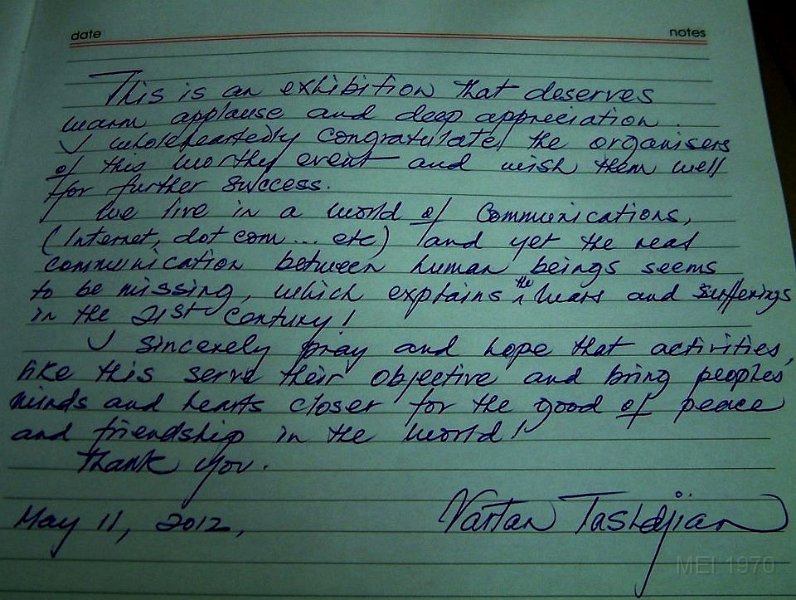 date notes
This is an exhibition that deserves
warm applause and deep appreciation.
I wholeheartedly congratulate the organisers
of this worthy event and wish them well
for further success.
We live in a world of communications,
(Internet, dot com ... etc) and yet the real
communication between human beings seems
to be missing, which explains the wars and sufferings
in the 21st century!
I sincerely pray and hope that activities,
like this serve their objective and bring peoples'
minds and hearts closer for the good of peace
and friendship in the world!
Thank you.
May 11, 2012, Vartan Tashdjian
MEI 1970